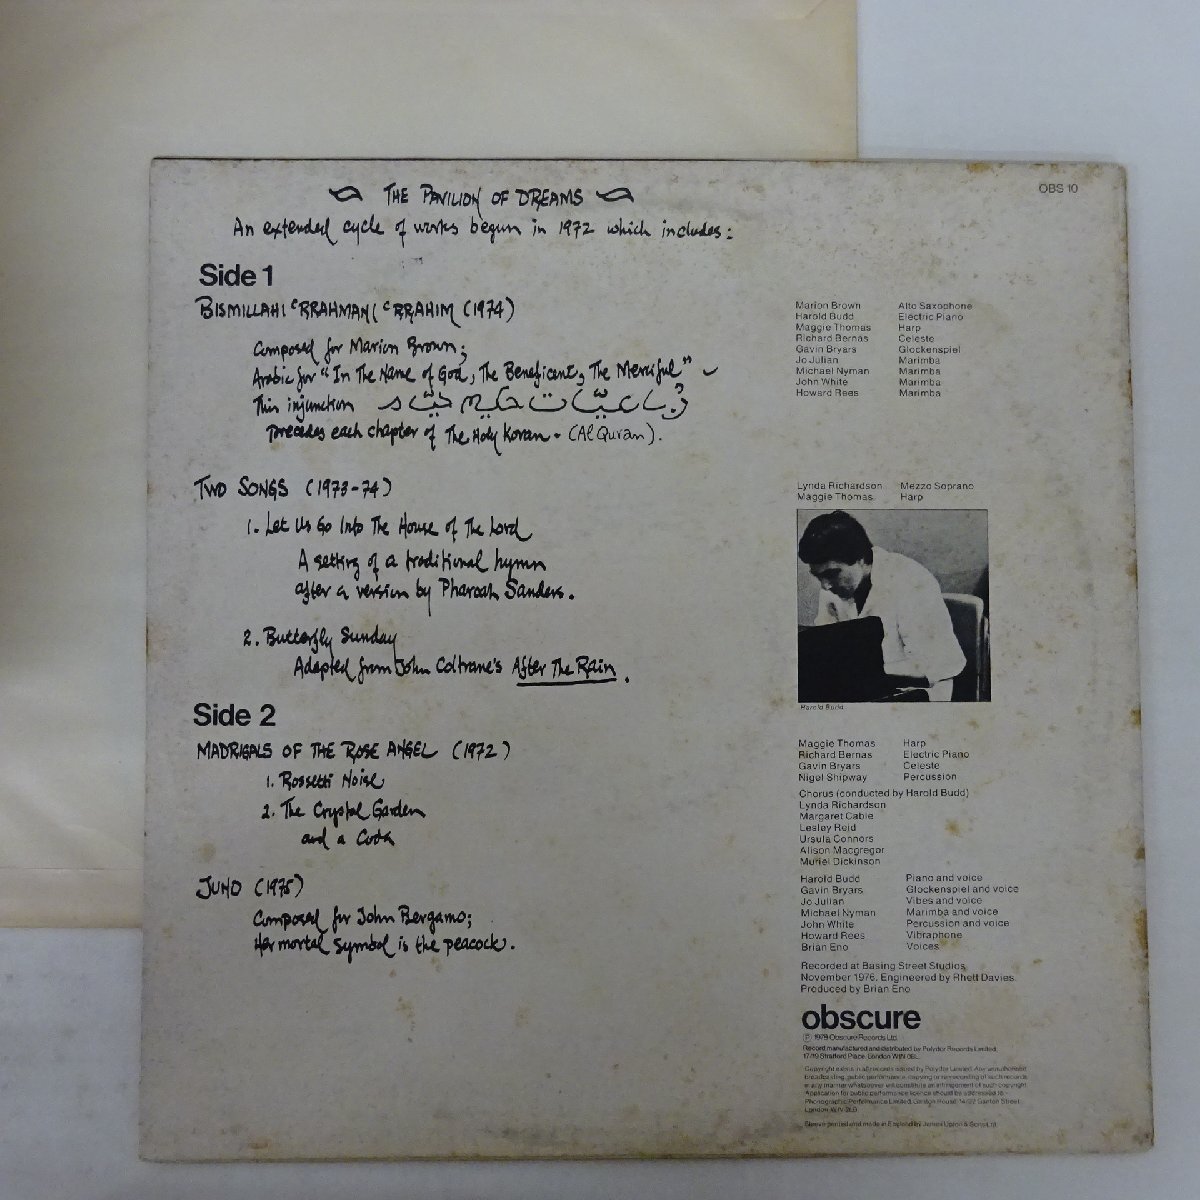 THE PAVILION OF DREAMS
OBS 10
An extended cycle of works begun in 1972 which includes:
Side 1
BISMILLAHI 'RRAHMANI 'RRAHIM (1974)
Composed for Marion Brown;
Arabic for "In The Name of God, The Beneficent, The Merciful"
This injunction
precedes each chapter of The Holy Koran - (Al Quran).
Marion Brown Alto Saxophone
Harold Budd Electric Piano
Maggie Thomas Harp
Richard Bernas Celeste
Gavin Bryars Glockenspiel
Jo Julian Marimba
Michael Nyman Marimba
John White Marimba
Howard Rees Marimba
TWO SONGS (1973-74)
1. Let Us Go Into The House of The Lord
A setting of a traditional hymn
after a version by Pharoah Sanders.
2. Butterfly Sunday
Adapted from John Coltrane's After The Rain.
Lynda Richardson Mezzo Soprano
Maggie Thomas Harp
Harold Budd
Side 2
MADRIGALS OF THE ROSE ANGEL (1972)
1. Rossetti Noise
2. The Crystal Garden
and a Coda
JUNO (1975)
Composed for John Bergamo;
Her mortal symbol is the peacock.
Maggie Thomas Harp
Richard Bernas Electric Piano
Gavin Bryars Celeste
Nigel Shipway Percussion
Chorus (conducted by Harold Budd)
Lynda Richardson
Margaret Cable
Lesley Reid
Ursula Connors
Alison Macgregor
Muriel Dickinson
Harold Budd Piano and voice
Gavin Bryars Glockenspiel and voice
Jo Julian Vibes and voice
Michael Nyman Marimba and voice
John White Percussion and voice
Howard Rees Vibraphone
Brian Eno Voices
Recorded at Basing Street Studios,
November 1976. Engineered by Rhett Davies.
Produced by Brian Eno
obscure
Ⓟ 1978 Obscure Records Ltd.
Record manufactured and distributed by Polydor Records Limited,
17/19 Stratford Place, London W1N 0BL.
Copyright exists in all records issued by Polydor Limited. Any unauthorised
broadcasting, public performance, copying or re-recording of such records
in any manner whatsoever will constitute an infringement of such copyright.
Application for public performance licence should be addressed to:-
Phonographic Performance Limited, Ganton House, 14/22 Ganton Street,
London W1V 1LB
Sleeve printed and made in England by James Upton & Sons Ltd